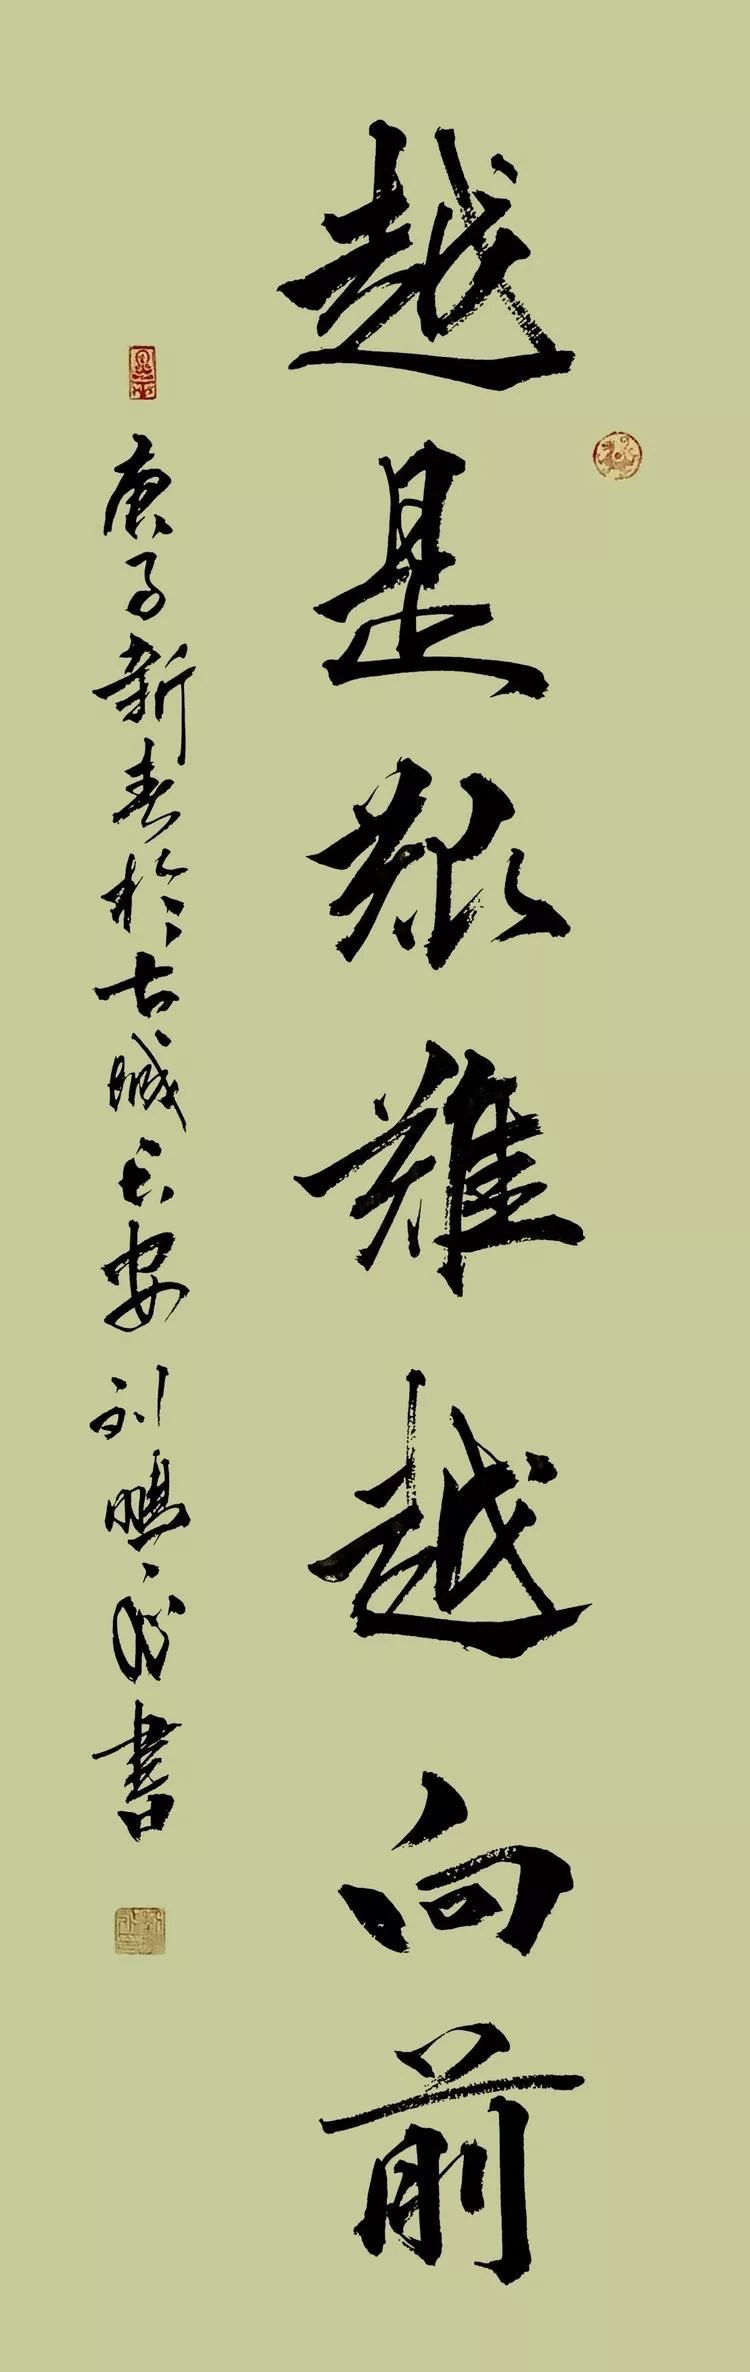 越是艱難越向前
庚子新春於古城長安劉鵬飛書